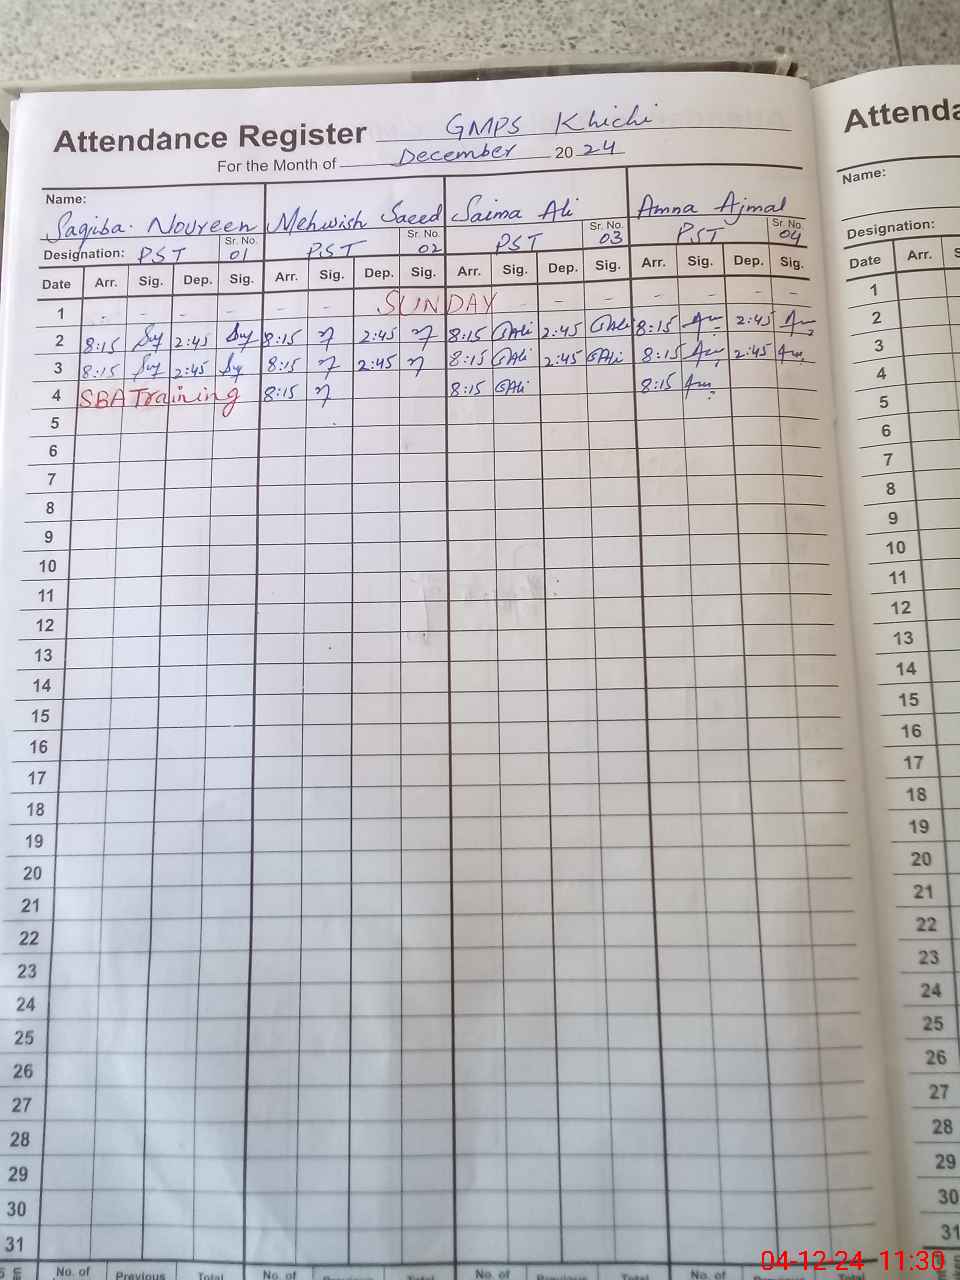 Attendance Register GMPS Khichi
For the Month of December 2024
Name:
Saqiba Noureen Mehwish Saeed Saima Ali Amna Ajmal
Designation: PST Sr. No. 01 PST Sr. No. 02 PST Sr. No. 03 PST Sr. No. 04
Date Arr. Sig. Dep. Sig. Arr. Sig. Dep. Sig. Arr. Sig. Dep. Sig. Arr. Sig. Dep. Sig.
1 - - - - - - SUNDAY - - - - - - -
2 8:15 2:45 8:15 2:45 8:15 GAli 2:45 GAli 8:15 Am 2:45 Am
3 8:15 2:45 8:15 2:45 8:15 GAli 2:45 GAli 8:15 Am 2:45 Am
4 SBA Training 8:15 8:15 GAli 8:15 Am
5
6
7
8
9
10
11
12
13
14
15
16
17
18
19
20
21
22
23
24
25
26
27
28
29
30
31
No. of Previous Total No. of Total No. of Previous Total No. of Total
Attenda
Name:
Designation:
Date Arr. S
1
2
3
4
5
6
7
8
9
10
11
12
13
14
15
16
17
18
19
20
21
22
23
24
25
26
27
28
29
30
31
04-12-24 11:30